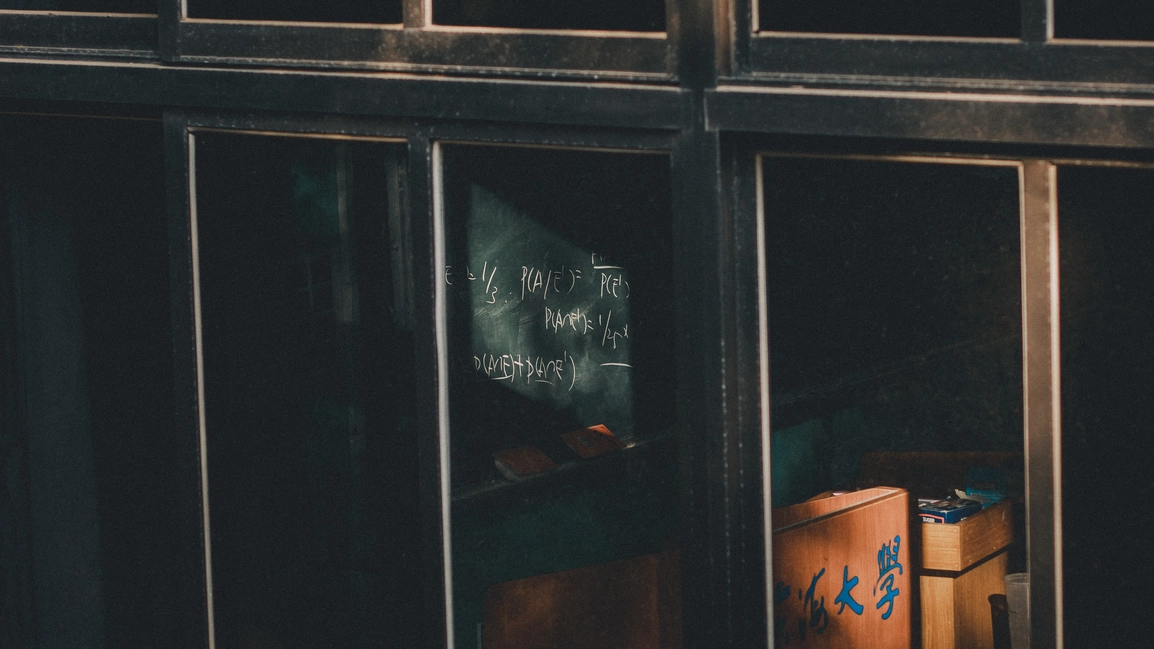 = 1/3 . . P(A/E') =
P(E')
P(A∩E') = 1/2
P(A∩E) + P(A∩E')
海大學